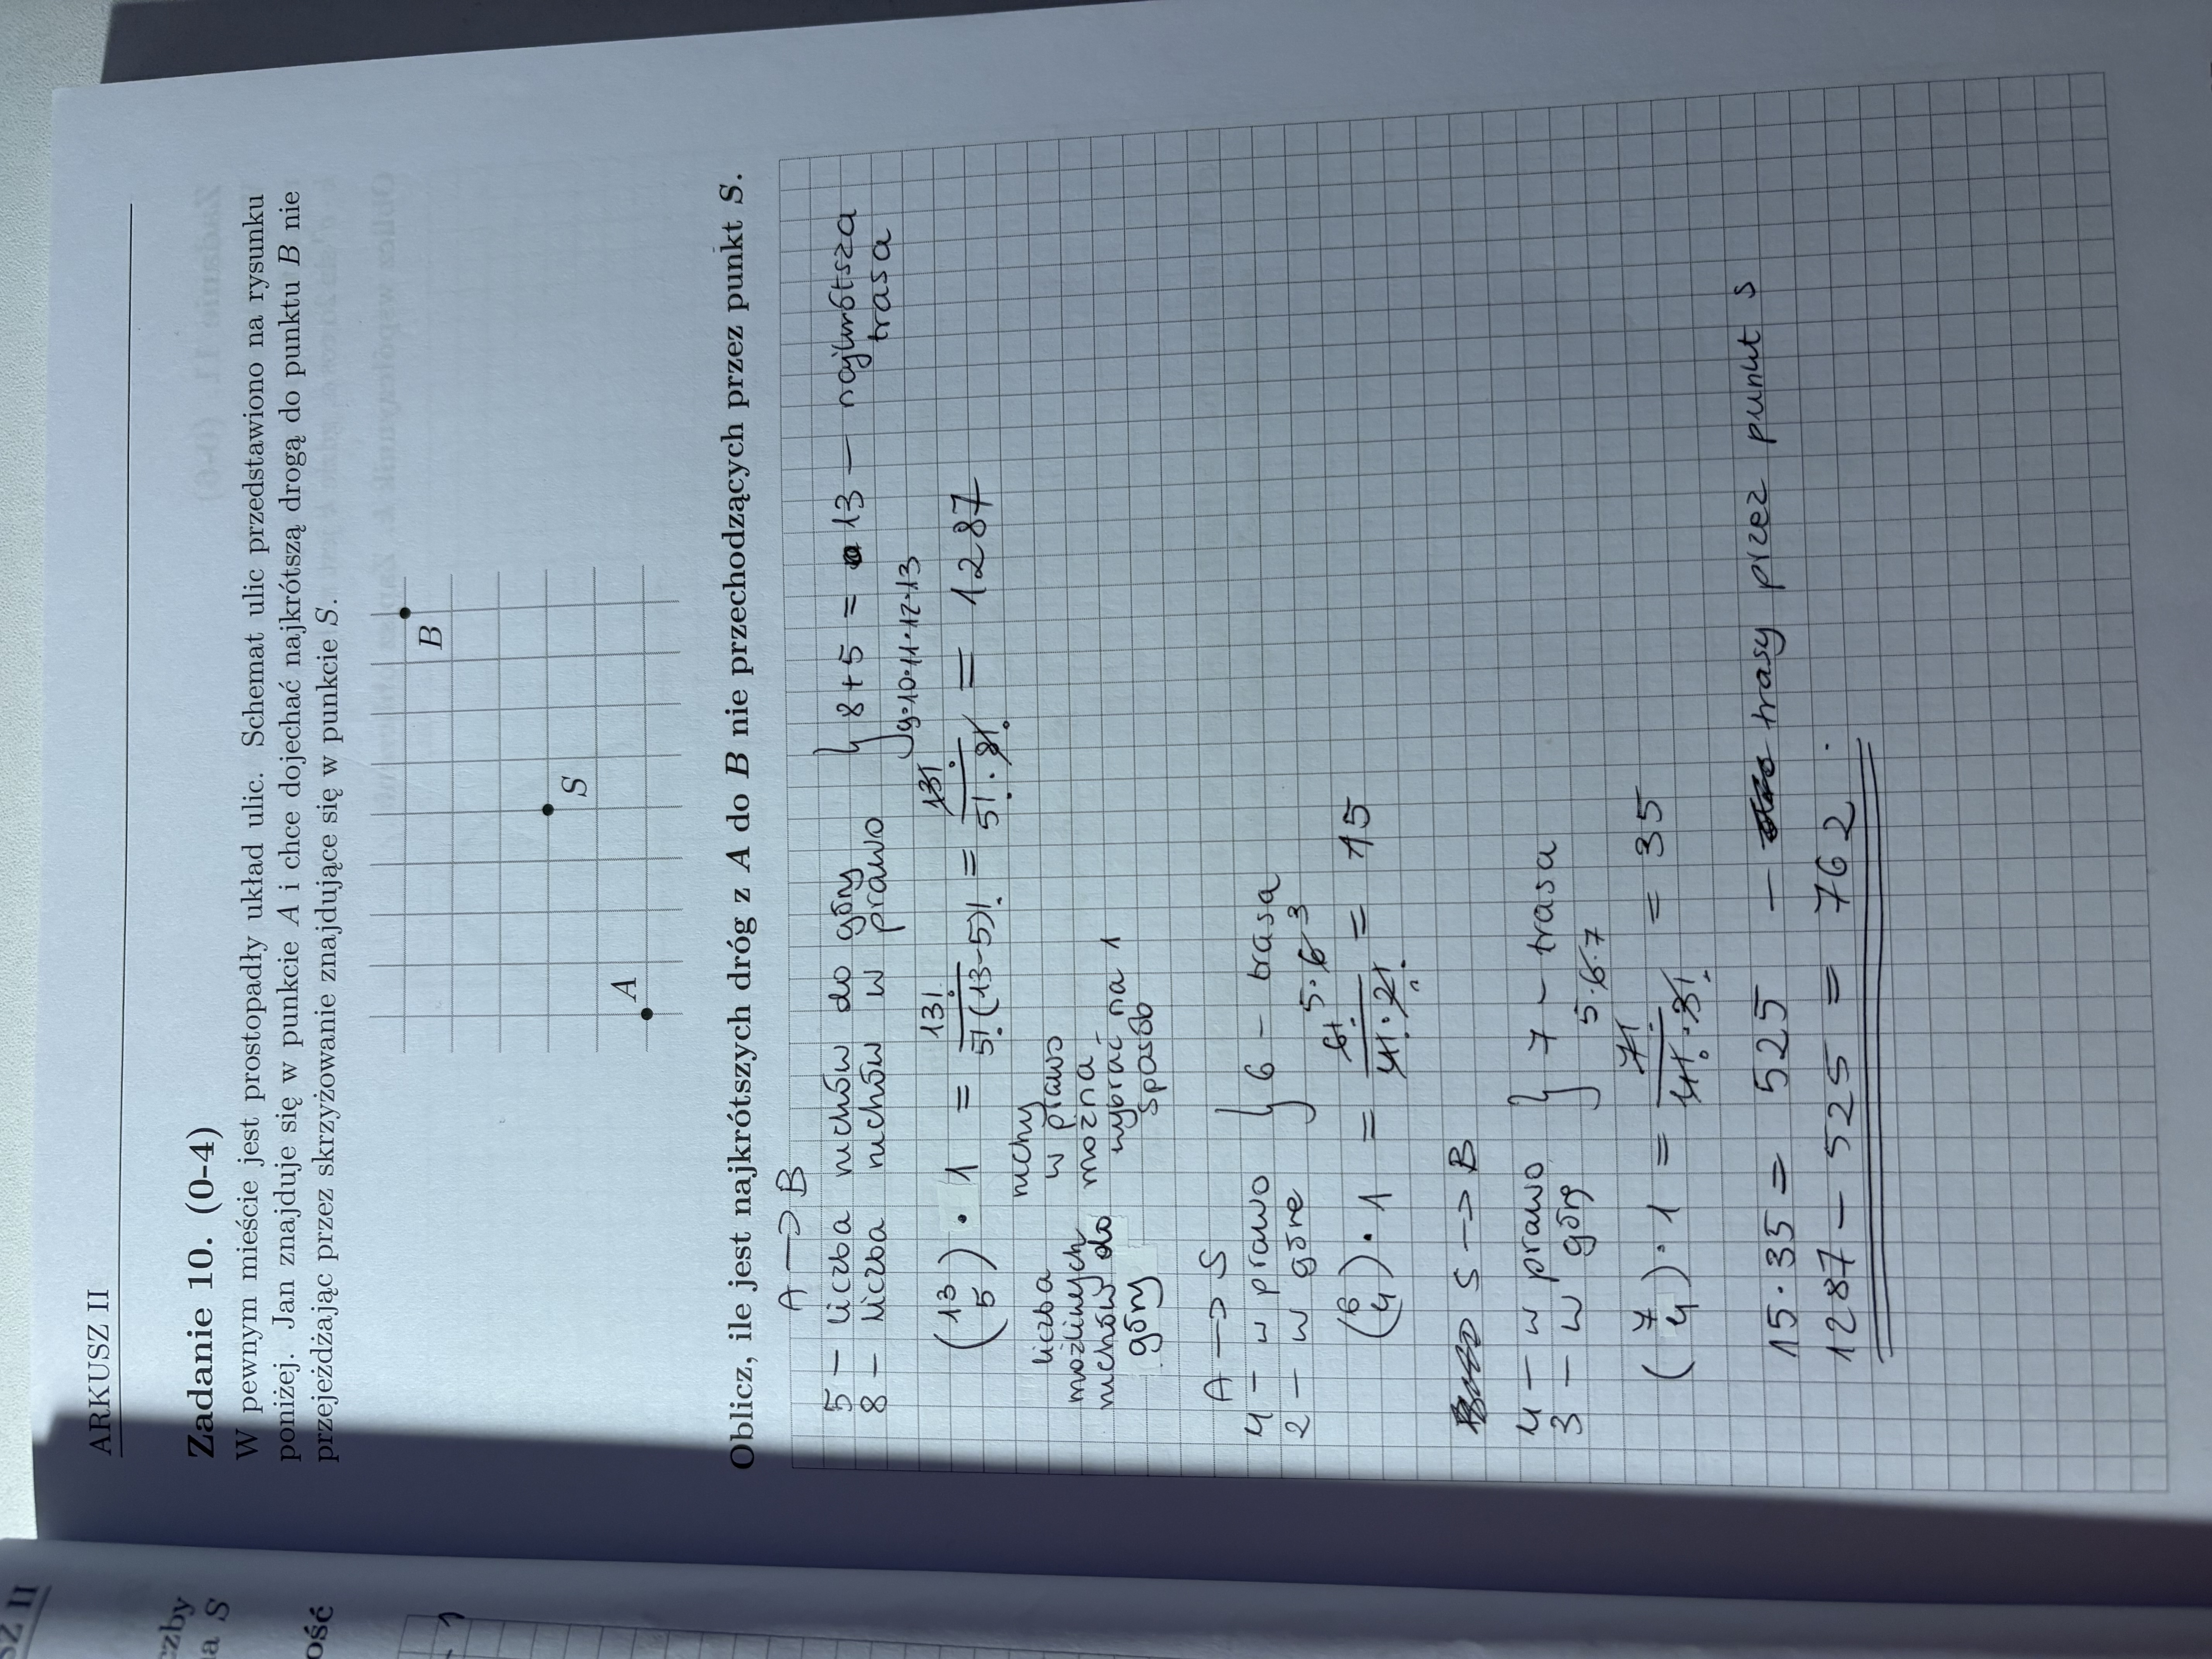 ARKUSZ II
Zadanie 10. (0-4)
W pewnym mieście jest prostopadły układ ulic. Schemat ulic przedstawiono na rysunku
poniżej. Jan znajduje się w punkcie A i chce dojechać najkrótszą drogą do punktu B nie
przejeżdżając przez skrzyżowanie znajdujące się w punkcie S.
B
S
A
Oblicz, ile jest najkrótszych dróg z A do B nie przechodzących przez punkt S.
A → B
5 – liczba ruchów do góry } 8 + 5 = 13 – najkrótsza
8 – liczba ruchów w prawo trasa
(13 5) · 1 = 13! / 5!(13-5)! = 13! 9·10·11·12·13 / 5! · 8! = 1287
liczba możliwych ruchów do góry
ruchy w prawo można wybrać na 1 sposób
A → S
4 – w prawo } 6 – trasa
2 – w górę
(6 4) · 1 = 6! 5·6 3 / 4! · 2! = 15
S → B
4 – w prawo } 7 – trasa
3 – w górę
(7 4) · 1 = 7! 5·6·7 / 4! · 3! = 35
15 · 35 = 525 – trasy przez punkt S
1287 – 525 = 762.
SZ II
czby
na S
ość